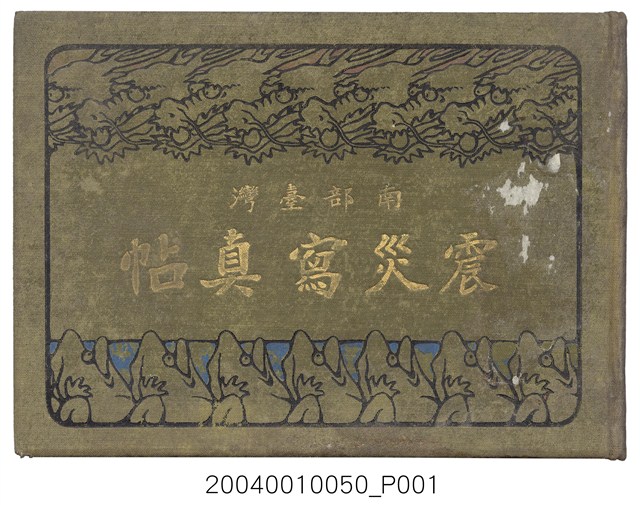 南部臺灣
震災寫真帖
20040010050_P001